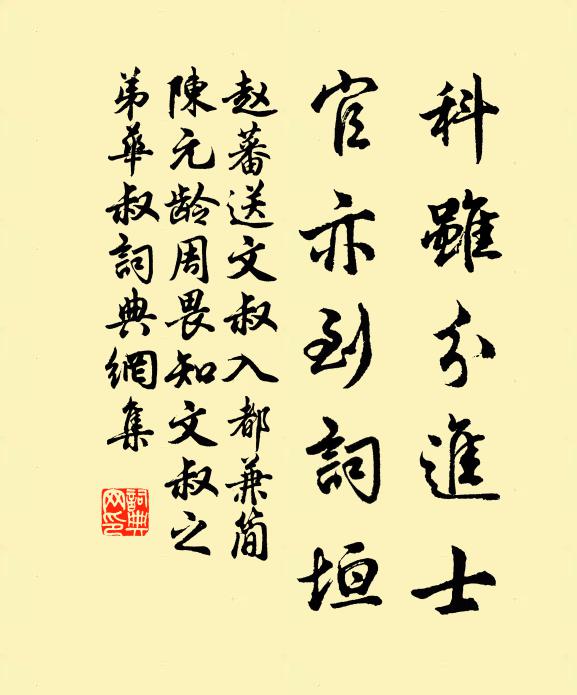 科雖分進士
官亦到詞垣
赵蕃送文叔入都兼简
陳元龄周畏知文叔之
弟華叔詞典網集
詞典網印